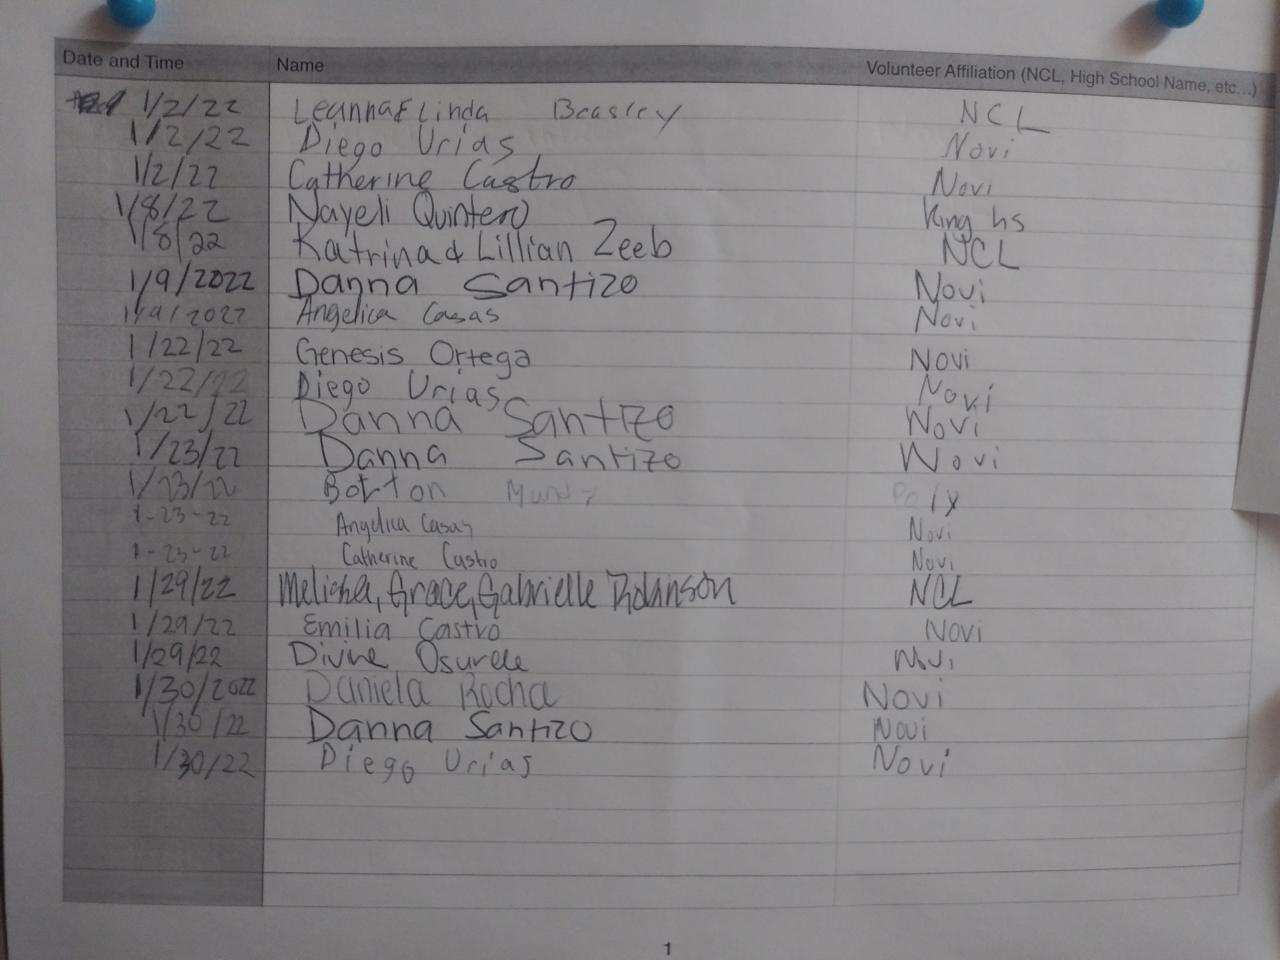 Date and Time Name Volunteer Affiliation (NCL, High School Name, etc...)
1/2/22 Leanna & Linda Beasley NCL
1/2/22 Diego Urias Novi
1/2/22 Catherine Castro Novi
1/8/22 Nayeli Quintero King hs
1/8/22 Katrina & Lillian Zeeb NCL
1/9/2022 Danna Santizo Novi
1/9/2022 Angelica Casas Novi
1/22/22 Genesis Ortega Novi
1/22/22 Diego Urias Novi
1/22/22 Danna Santizo Novi
1/23/22 Danna Santizo Novi
1/23/22 Poly
1-23-22 Angelica Casas Novi
1-23-22 Catherine Castro Novi
1/29/22 Grace, Gabrielle Robinson NCL
1/29/22 Emilia Castro Novi
1/29/22 Divine Novi
1/30/2022 Daniela Rocha Novi
1/30/22 Danna Santizo Novi
1/30/22 Diego Urias Novi
1